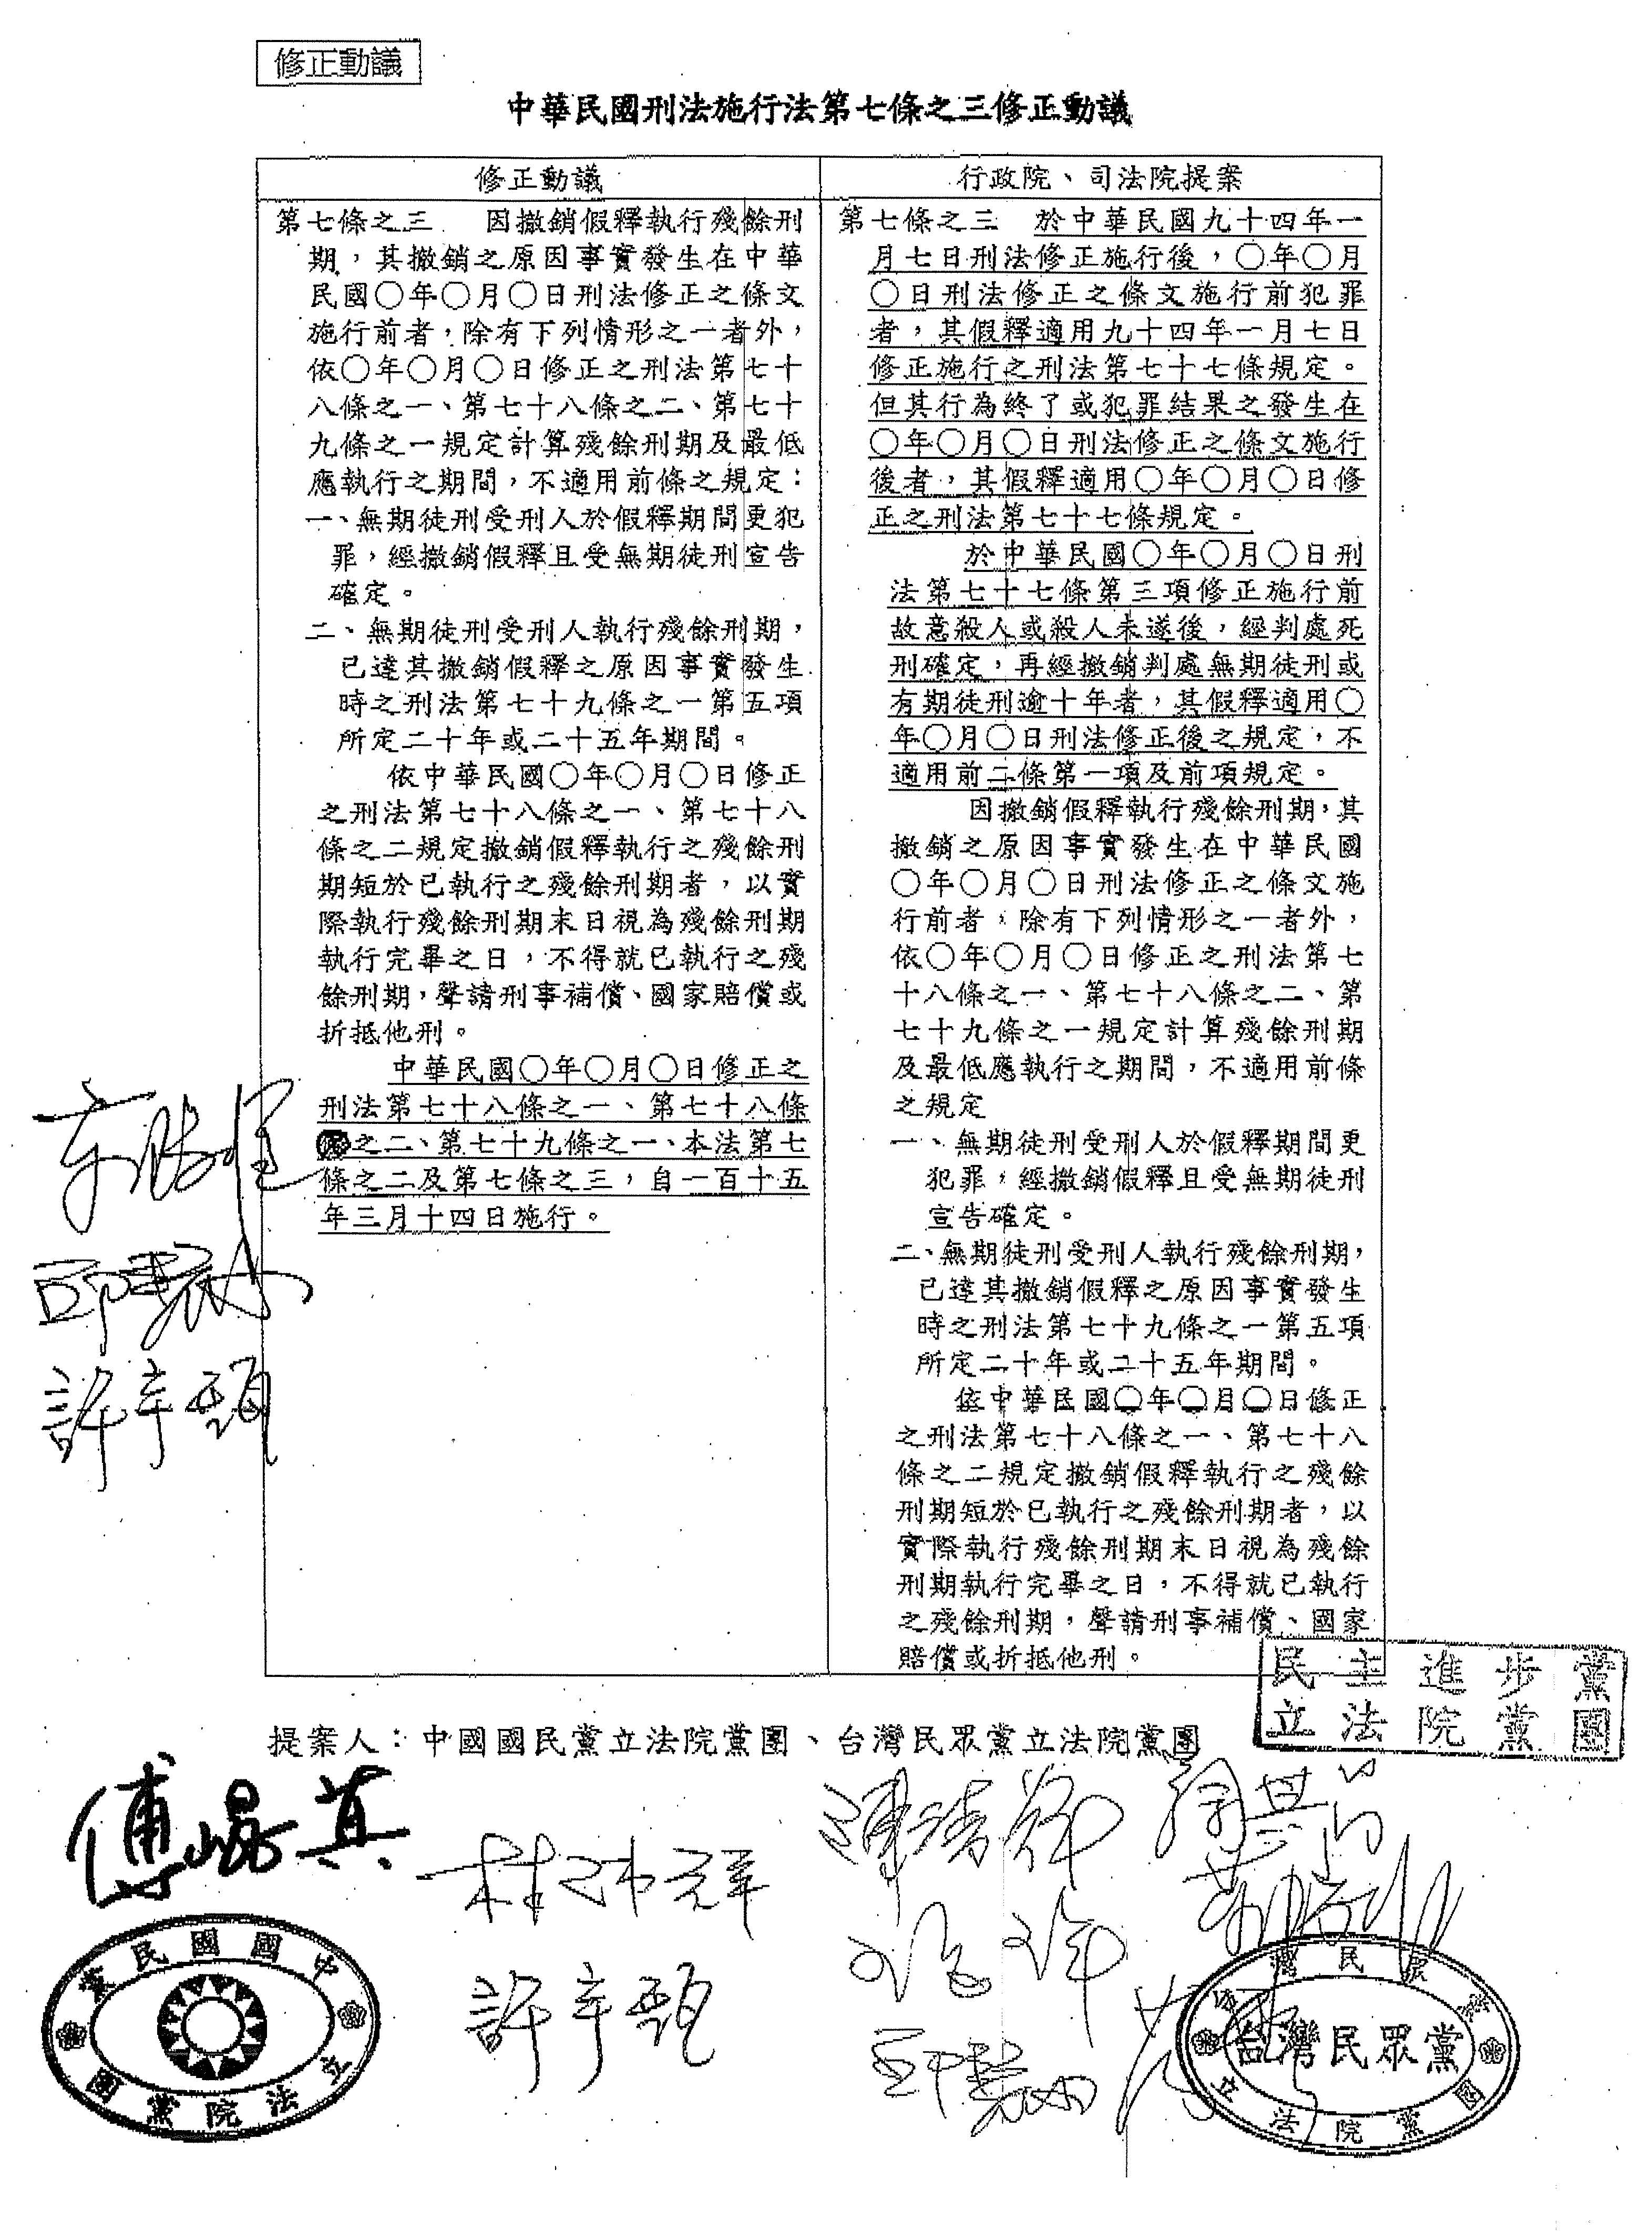 修正動議
中華民國刑法施行法第七條之三修正動議
修正動議
第七條之三 因撤銷假釋執行殘餘刑
期，其撤銷之原因事實發生在中華
民國○年○月○日刑法修正之條文
施行前者，除有下列情形之一者外，
依○年○月○日修正之刑法第七十
八條之一、第七十八條之二、第七十
九條之一規定計算殘餘刑期及最低
應執行之期間，不適用前條之規定：
一、無期徒刑受刑人於假釋期間更犯
罪，經撤銷假釋且受無期徒刑宣告
確定。
二、無期徒刑受刑人執行殘餘刑期，
已達其撤銷假釋之原因事實發生
時之刑法第七十九條之一第五項
所定二十年或二十五年期間。
依中華民國○年○月○日修正
之刑法第七十八條之一、第七十八
條之二規定撤銷假釋執行之殘餘刑
期短於已執行之殘餘刑期者，以實
際執行殘餘刑期末日視為殘餘刑期
執行完畢之日，不得就已執行之殘
餘刑期，聲請刑事補償、國家賠償或
折抵他刑。
中華民國○年○月○日修正之
刑法第七十八條之一、第七十八條
之二、第七十九條之一、本法第七
條之二及第七條之三，自一百十五
年三月十四日施行。
行政院、司法院提案
第七條之三 於中華民國九十四年一
月七日刑法修正施行後，○年○月
○日刑法修正之條文施行前犯罪
者，其假釋適用九十四年一月七日
修正施行之刑法第七十七條規定。
但其行為終了或犯罪結果之發生在
○年○月○日刑法修正之條文施行
後者，其假釋適用○年○月○日修
正之刑法第七十七條規定。
於中華民國○年○月○日刑
法第七十七條第三項修正施行前
故意殺人或殺人未遂後，經判處死
刑確定，再經撤銷判處無期徒刑或
有期徒刑逾十年者，其假釋適用○
年○月○日刑法修正後之規定，不
適用前二條第一項及前項規定。
因撤銷假釋執行殘餘刑期，其
撤銷之原因事實發生在中華民國
○年○月○日刑法修正之條文施
行前者，除有下列情形之一者外，
依○年○月○日修正之刑法第七
十八條之一、第七十八條之二、第
七十九條之一規定計算殘餘刑期
及最低應執行之期間，不適用前條
之規定
一、無期徒刑受刑人於假釋期間更
犯罪，經撤銷假釋且受無期徒刑
宣告確定。
二、無期徒刑受刑人執行殘餘刑期，
已達其撤銷假釋之原因事實發生
時之刑法第七十九條之一第五項
所定二十年或二十五年期間。
依中華民國○年○月○日修正
之刑法第七十八條之一、第七十八
條之二規定撤銷假釋執行之殘餘
刑期短於已執行之殘餘刑期者，以
實際執行殘餘刑期末日視為殘餘
刑期執行完畢之日，不得就已執行
之殘餘刑期，聲請刑事補償、國家
賠償或折抵他刑。
許宇甄
民主進步黨
立法院黨團
提案人：中國國民黨立法院黨團、台灣民眾黨立法院黨團
傅崐萁
許宇甄
中國國民黨
立法院黨團
台灣民眾黨
台灣民眾黨
立法院黨團